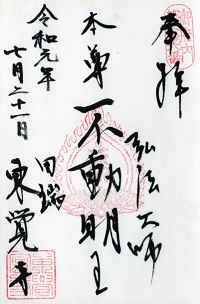 奉拝
弘法大師
本尊不動明王
田端
東覚寺
令和元年
七月二十一日